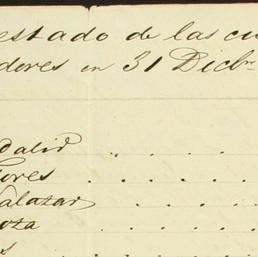 estado de las cu
dores en 31 Dicbr
dalid
lores
Salazar
oza
s